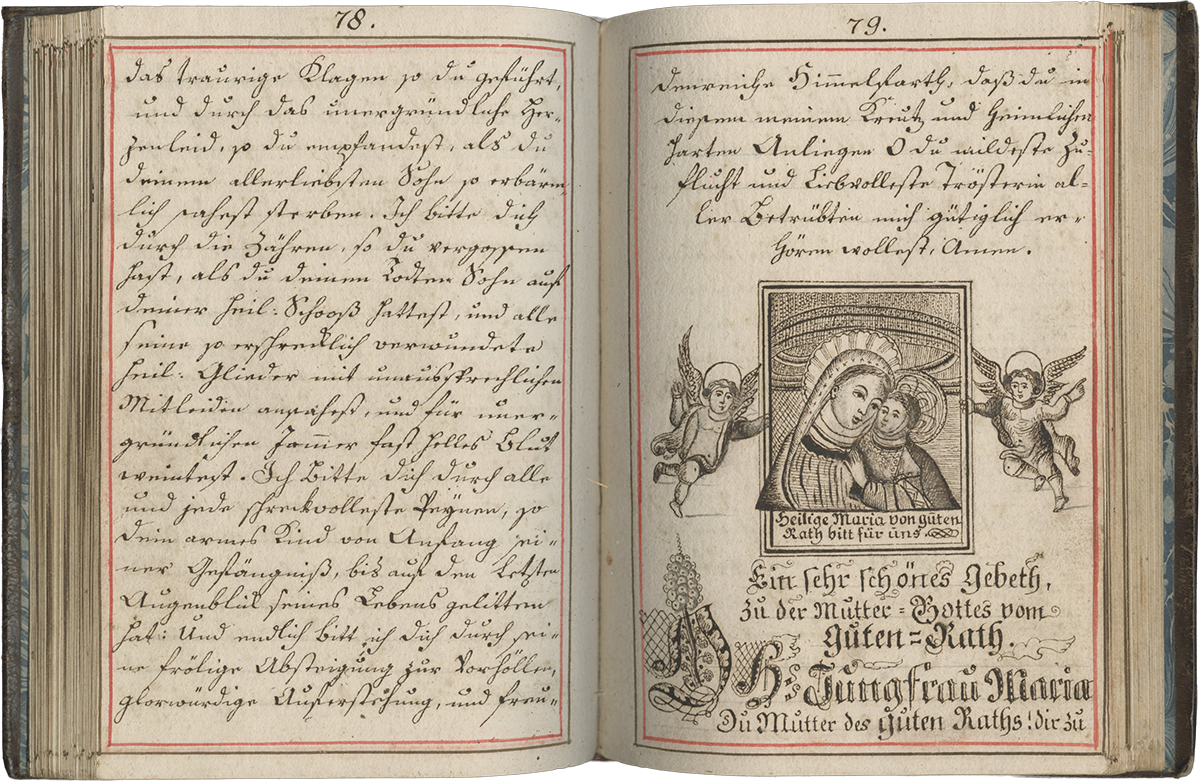 78.
das traurige Klagen so du geführt,
und durch das unergründliche Her-
zenleid, so du empfandest, als du
deinem allerliebsten Sohn so erbärm
lich sahest sterben. Ich bitte dich
durch die Zähren, so du vergossen
hast, als du deinen Todten Sohn auf
deiner heil: Schooß hattest, und alle
seine so erschrecklich verwundete
heil: Glieder mit unaussprechlichen
Mitleiden ansahest, und für uner-
gründlichen Jam̄er fast helles Blut
weintest. Ich Bitte dich durch alle
und jede schreckvolleste Peynen, so
dein armes Kind von Anfang sei-
ner Gefängniß, bis auf den Letzten
Augenblick seines Lebens gelitten
hat: Und endlich bitt ich dich durch sei-
ne frölige Absteigung zur Vorhöllen,
glorwürdige Auferstehung, und freu-
79.
denreiche Himmelfarth, daß du in
diesem meinem Kreutz und heimlichen
harten Anliegen O du mildeste Zu-
flucht und Liebvolleste Trösterin al-
ler Betrübten mich gütiglich er-
hören wollest, Amen.
Heilige Maria von guten
Rath bitt für uns
Ein sehr schönes Gebeth,
zu der Mutter=Gottes vom
guten=Rath.
Jungfrau Maria
Du Mutter des guten Raths! dir zu